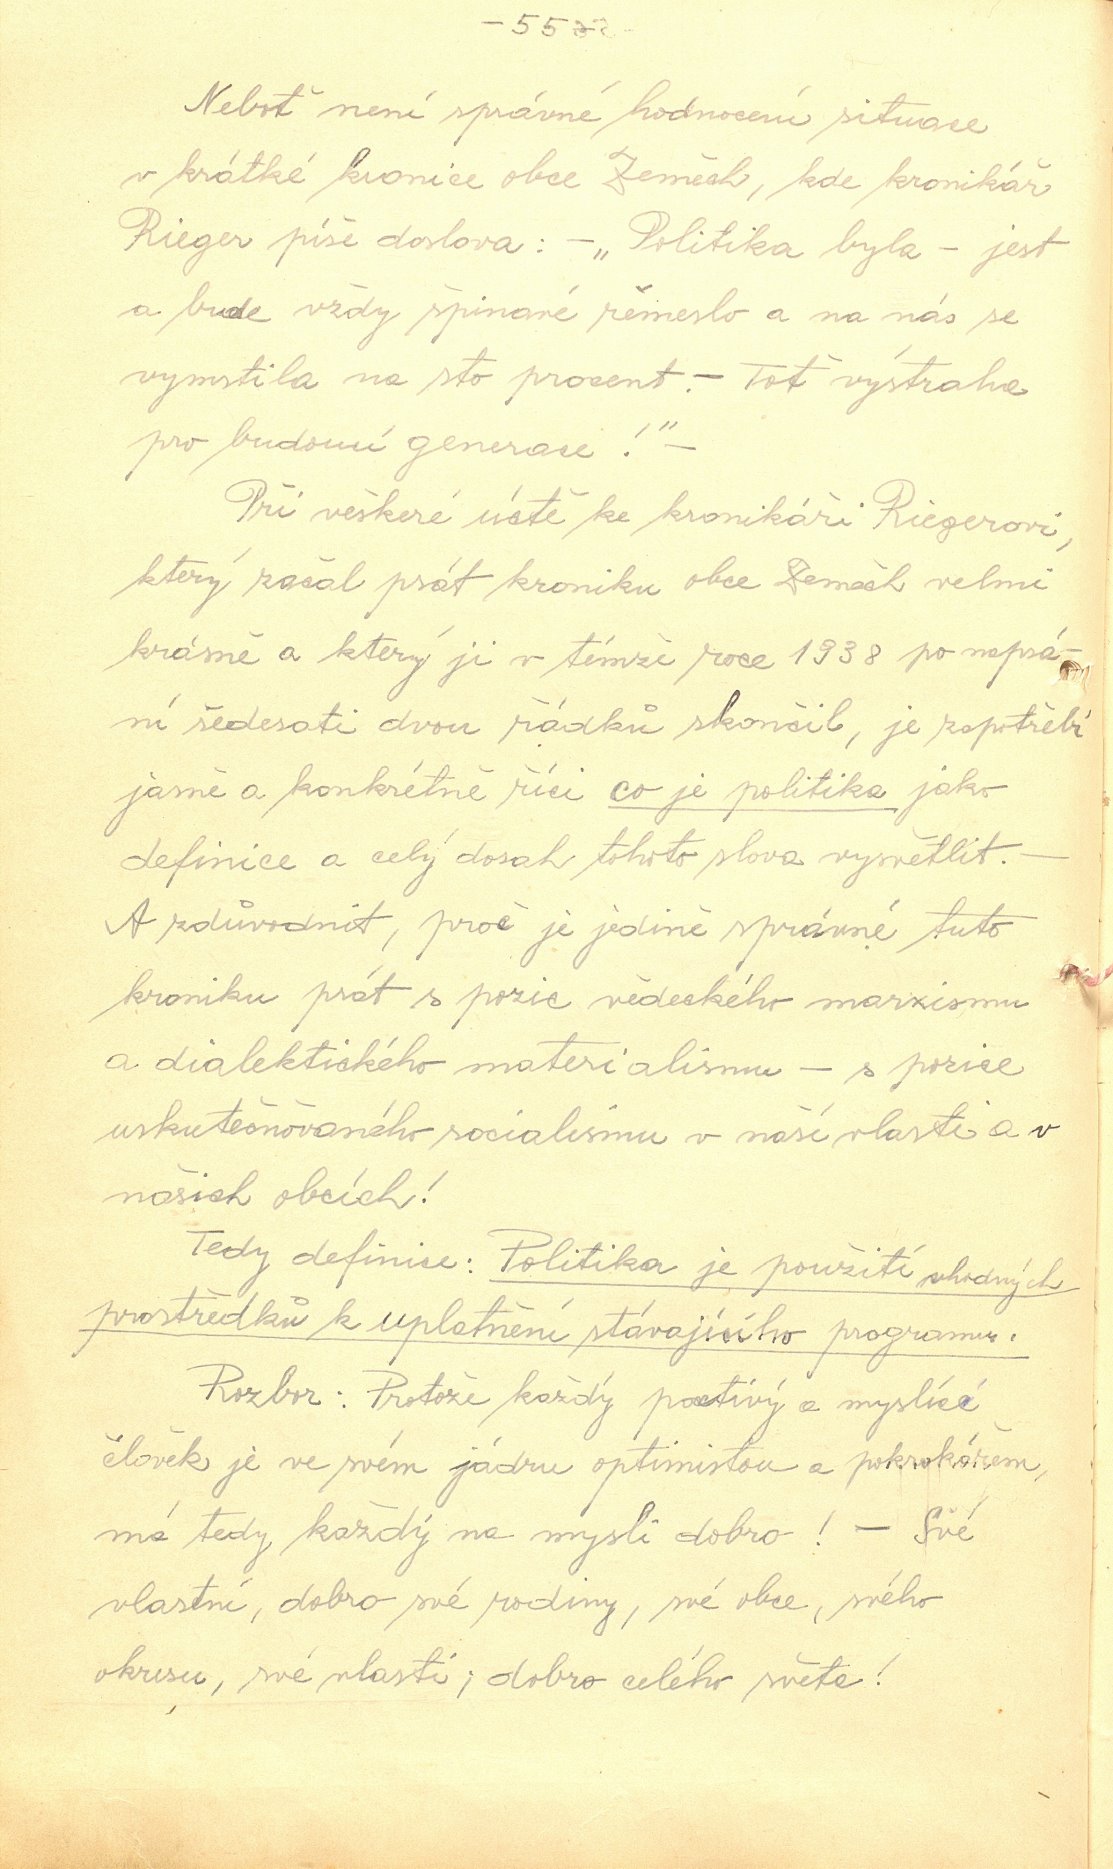 - 55
Neboť není správné hodnocení situace
v krátké kronice obce Zeměch, kde kronikář
Rieger píše doslova: - „Politika byla - jest
a bude vždy špinavé řemeslo a na nás se
vymstila na sto procent. - Toť výstraha
pro budoucí generace!" -
Při veškeré úctě ke kronikáři Riegerovi,
který začal psát kroniku obce Zeměch velmi
krásně a který ji v témže roce 1938 po napsá-
ní šedesáti dvou řádků skončil, je zapotřebí
jasně a konkrétně říci co je politika jako
definice a celý dosah tohoto slova vysvětlit. -
A zdůvodnit, proč je jedině správné tuto
kroniku psát s pozic vědeckého marxismu
a dialektického materialismu - s pozice
uskutečňovaného socialismu v naší vlasti a v
našich obcích!
Tedy definice: Politika je použití vhodných
prostředků k uplatnění stávajícího programu.
Rozbor: Protože každý poctivý a myslící
člověk je ve svém jádru optimistou a pokrokářem,
má tedy každý na mysli dobro! - Své
vlastní, dobro své rodiny, své obce, svého
okresu, své vlasti; dobro celého světa!